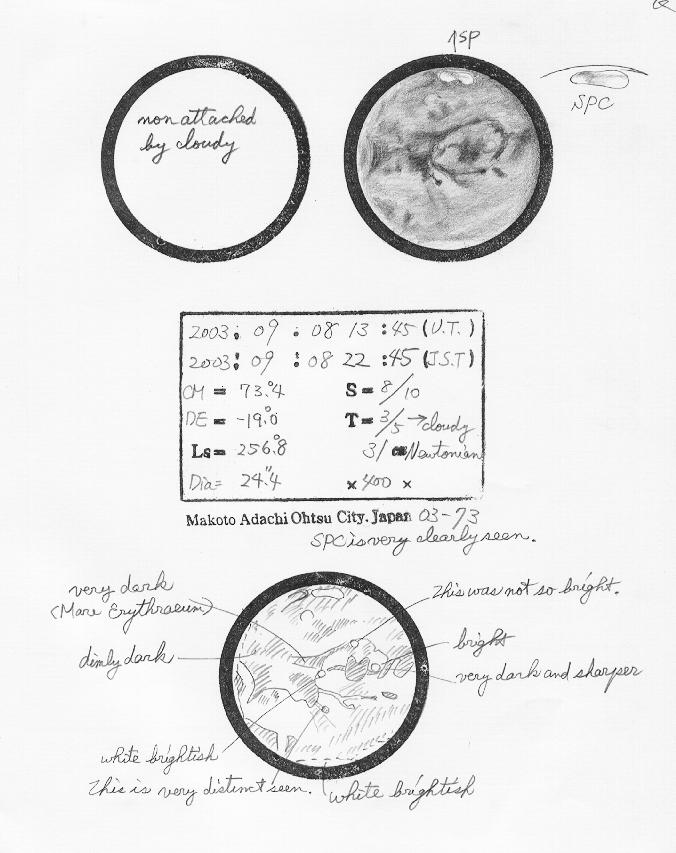 ↑SP
non attached
by cloudy
SPC
2003: 09 : 08 13 :45 (U.T.)
2003: 09 : 08 22 :45 (J.S.T)
CM = 73.°4 S = 8/10
DE = -19.°0 T = 3/5 → cloudy
Ls = 256.°8 31 cm Newtonian
Dia = 24."4 × 400 ×
Makoto Adachi Ohtsu City. Japan 03-73
SPC is very clearly seen.
very dark
(Mare Erythraeum)
This was not so bright.
dimly dark
bright
very dark and sharper
white brightish
This is very distinct seen.
white brightish